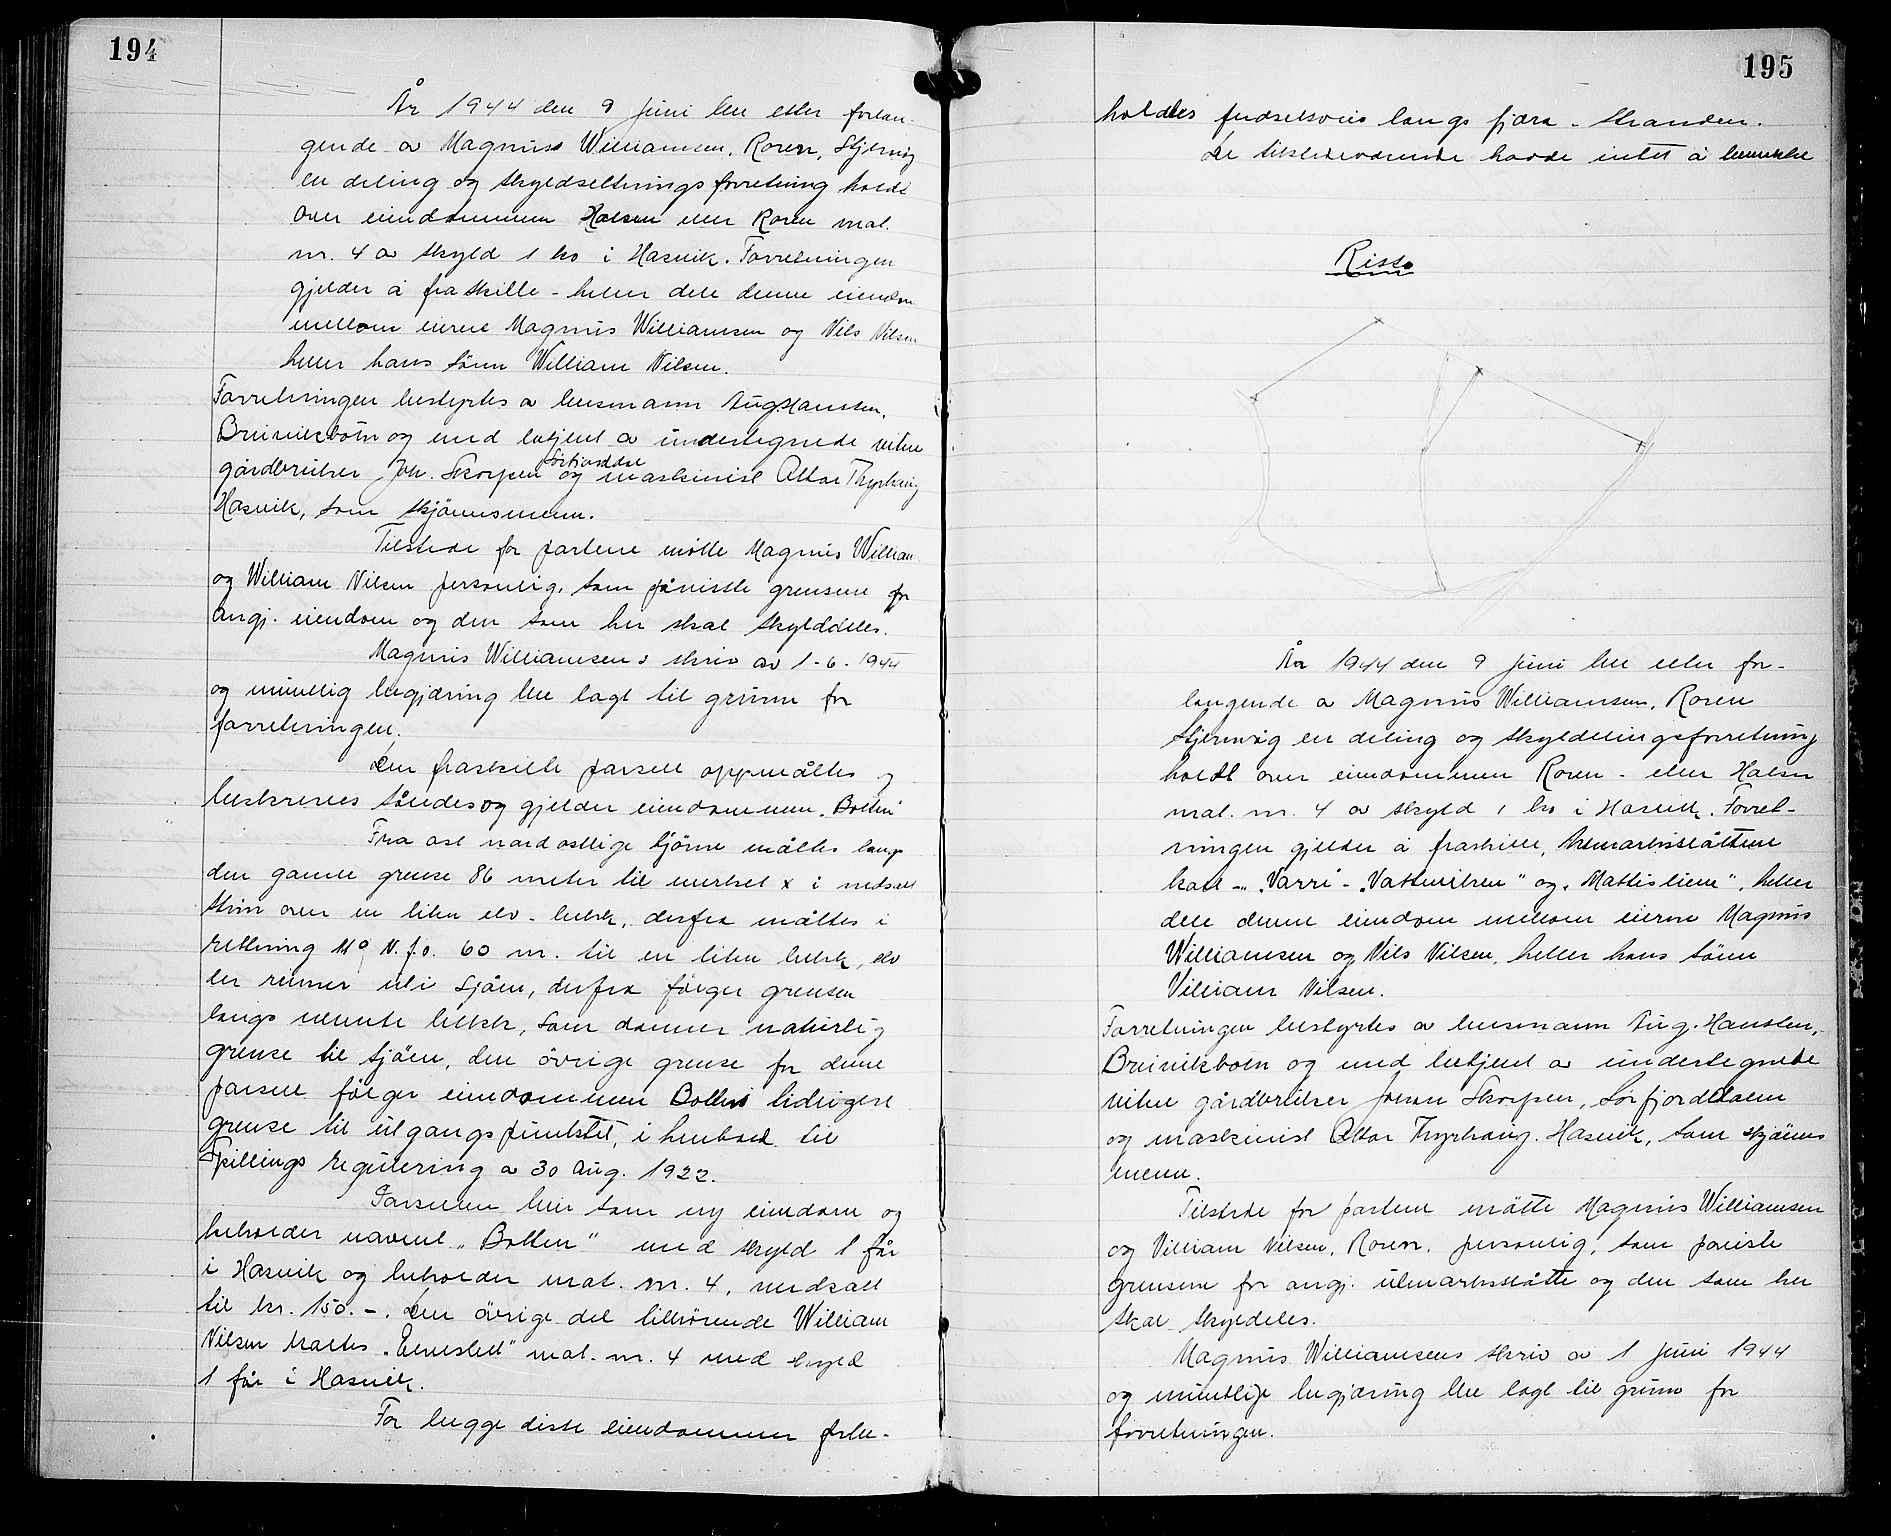 194
År 1944 den 9 juni ble etter forlan-
gende av Magnus Williamsen, Roren, Stjernøy
en deling og skyldsettningsforretning holdt
over eiendommen Halsen eller Roren mat.
nr. 4 av skyld 1 ko i Hasvik. Forretningen
gjelder å fraskille - heller dele denne eiendom
mellom eierne Magnus Williamsen og Nils Nilsen
heller hans sönn William Nilsen.
Forretningen bestyrtes av lensmann Aug Hanssen,
Breivikbotn og med betjent av undertegnede vitne
gårdbruker Joh. Skorpen Sörfjorddal og maskinist Altar Thyrhaug
Hasvik, som skjönnsmenn.
Tilstede for partene mötte Magnus William
og William Nilsen personlig, som påviste grensene for
angj. eiendom og den som her skal skylddeles.
Magnus Williamsens skriv av 1-6-1944
og muntlig begjæring ble lagt til grunn for
forretningen.
Den fraskilte parsell oppmåltes og
beskreves således og gjelder eiendommen "Botten"
Fra ost nordostlige hjörne måltes langs
den gamle grense 86 meter til merket x i nedsatt
stein over en liten elv - bekk, derfra måltes i
retning N. f. o. 60 m. til en liten bekk, elv
der renner ut i sjöen, derfra fölger grensen
langs nevnte bekk, som danner naturlig
grense til sjöen, den övrige grense for denne
parsell fölger eiendommen Botten tidligere
grense til utgangspunktet, i henhold til
Spillings regulering av 30 aug. 1922.
Parsellen blir som ny eiendom og
beholder navnet "Botten" med skyld 1 får
i Hasvik og beholder mat. nr. 4, verdsatt
til kr. 150.-. Den övrige del tilhörende William
Nilsen kaldes "Elveslett" mat. nr. 4 med skyld
1 får i Hasvik.
For begge disse eiendommer forbe-
195
holdes ferdselsveis langs fjæra - stranden.
De tilstedeværende havde intet å bemerke
Riss
År 1944 den 9 juni ble etter for-
langende av Magnus Williamsen, Roren
Stjernöy en deling og skylddelingsforretning
holdt over eiendommen Roren - eller Halsen
mat. nr. 4 av skyld 1 ko i Hasvik. Forret-
ningen gjelder å fraskille, utmarksslåttene
kalt - "Varri" - "Vattenviken" og "Mattislien", heller
dele denne eiendom mellom eierne Magnus
Williamsen og Nils Nilsen, heller hans sönn
Villiam Nilsen.
Forretningen bestyrtes av lensmann Aug. Hansten,
Breivikbotn og med betjent av undertegnete
vitne gårdbruker Johan Skorpen, Sörfjorddalen
og maskinist Altar Thyrhaug, Hasvik, som skjönns
menn.
Tilstede for partene mötte Magnus Williamsen
og Villiam Nilsen, Roren, personlig, som påviste
grensene for angj. utmarksslåtte og den som her
skal skyldeles.
Magnus Williamsens skriv av 1 juni 1944
og muntlige begjæring ble lagt til grunn for
forretningen.